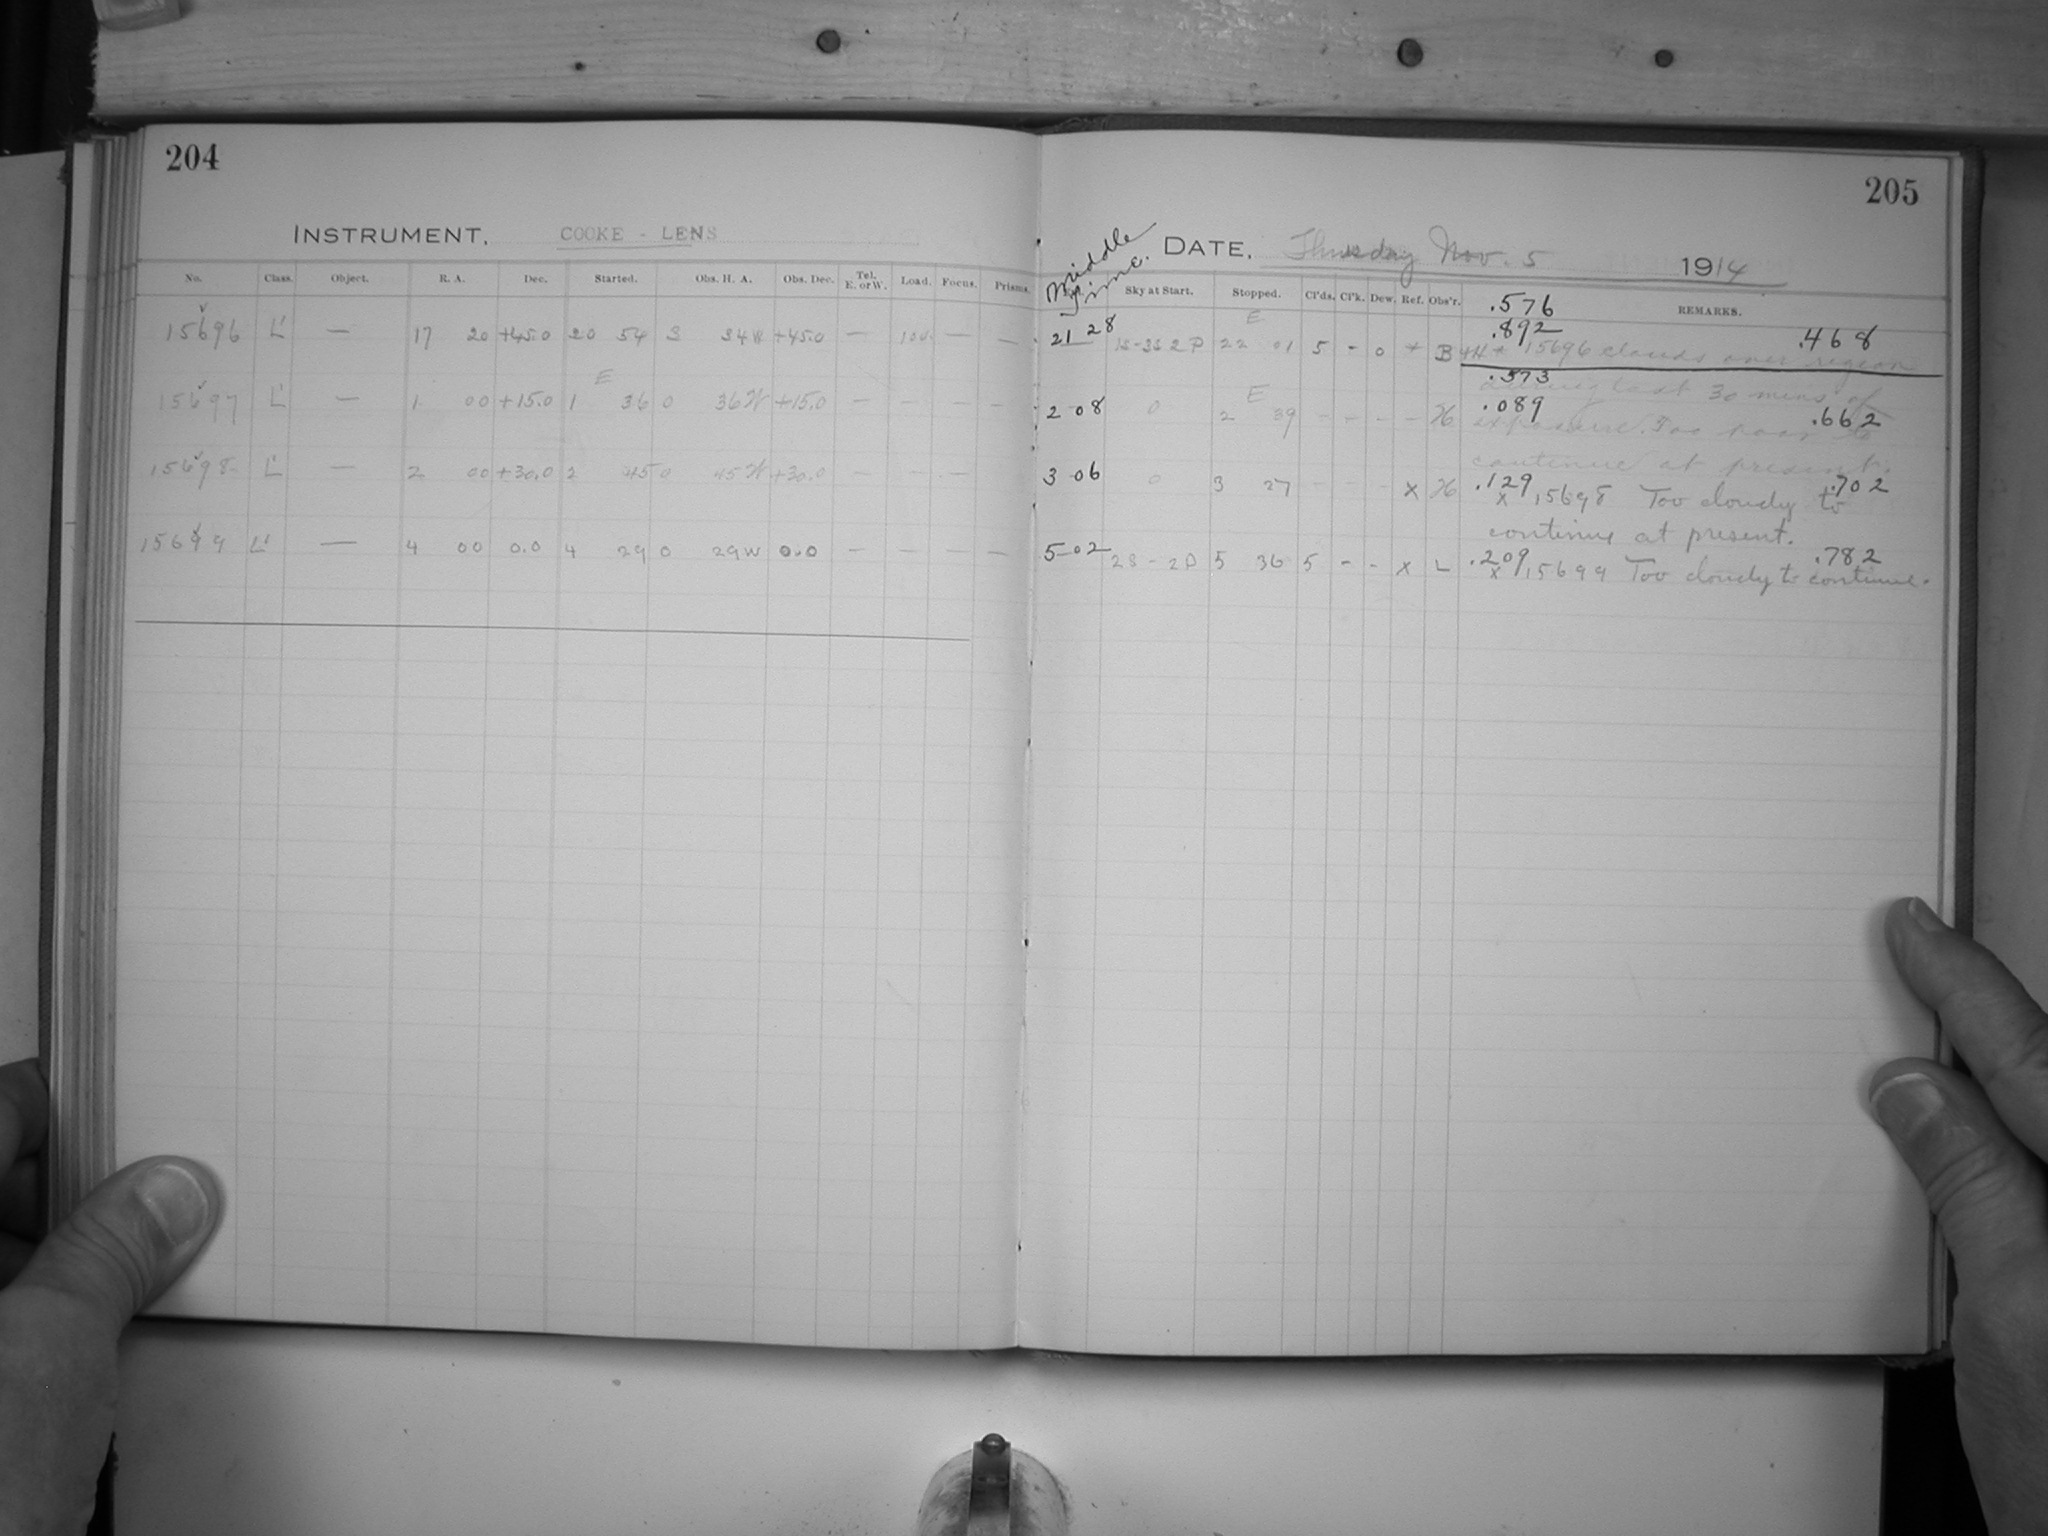 204
205
INSTRUMENT. COOKE - LENS
Middle Time.
DATE. Thursday Nov. 5 1914
No. Class. Object. R. A. Dec. Started. Obs. H. A. Obs. Dec. Tel. E. or W. Load. Focus. Prisms. Sky at Start. Stopped. Cl'ds. Cl'k. Dew. Ref. Obs'r. REMARKS.
.576
.892 .468
15696 L' — 17 20 +45.0 20 54 3 34W +45.0 — 100. — — 21 28 1S-3S 2P E 22 01 5 - 0 + B+H + 15696 clouds over region
.573
during last 30 mins of
15697 L' — 1 00 +15.0 E 1 36 0 36W +15.0 — — — — 2 08 0 E 2 39 - - - - H .089 .662
exposure. Too poor to
continue at present.
15698 L' — 2 00 +30.0 2 45 0 45W +30.0 — — — 3 06 0 3 27 - - - x H .129 .702
x 15698 Too cloudy to
continue at present.
15699 L' — 4 00 0.0 4 29 0 29W 0.0 — — — — 5 02 2S - 2P 5 36 5 - - x L .209 .782
x 15699 Too cloudy to continue.